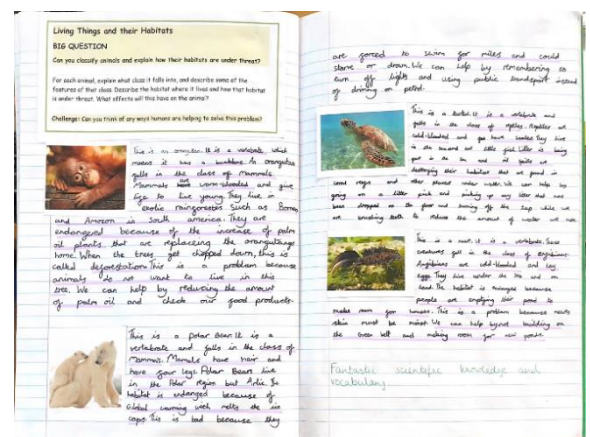 Living Things and their Habitats
BIG QUESTION
Can you classify animals and explain how their habitats are under threat?
For each animal, explain what class it falls into, and describe some of the
features of that class. Describe the habitat where it lives and how that habitat
is under threat. What effects will this have on the animal?
Challenge: Can you think of any ways humans are helping to solve this problem?
This is an orangutan. It is a vertebrate which
means it has a backbone. An orangutan
falls in the class of Mammals.
Mammals are warm-blooded and give
life to live young. They live in
exotic rainforests such as Borneo
and Amazon in South america. They are
endangered because of the increase of palm
oil plants that are replacing the orangutangs
home. When the trees get chopped down, this is
called deforestation. This is a problem because
animals do not want to live in this
tree. We can help by reducing the amount
of palm oil and check our food products.
This is a Polar Bear. It is a
vertebrate and falls in the class of
Mammals. Mamals have hair and
have four legs. Polar Bears live
in the Polar region but Artic. Its
habitat is endangered because of
Global warming wich melts the ice
caps. This is bad because they
are forced to swim for miles and could
starve or drown. We can help by remembering to
turn off lights and using public transport instead
of driving on petrol.
This is a turtle. It is a vertebrate and
falls in the class of reptiles. Reptiles are
cold-blooded and have scales. They live
in the sea and out
put in the sea and it
destroying their habitat that are found in
coral reefs and other places under water. We can help by
going on a litter pick and picking up any litter that has
been dropped on the floor and turning off the tap while we
are brushing teeth to reduce the amount of water we use.
This is a newt. it is a vertebrate. These
creatures fall in the class of amphibians.
Amphibians are cold-blooded and lay
eggs. They live under the sea and on
land. The habitat is endanged because
people are emptying their pond to
make room for houses. This is a problem because newts
skin must be moist. We can help by not building on
the Green belt and making room for new ponds.
Fantastic scientific knowledge and
vocabulary